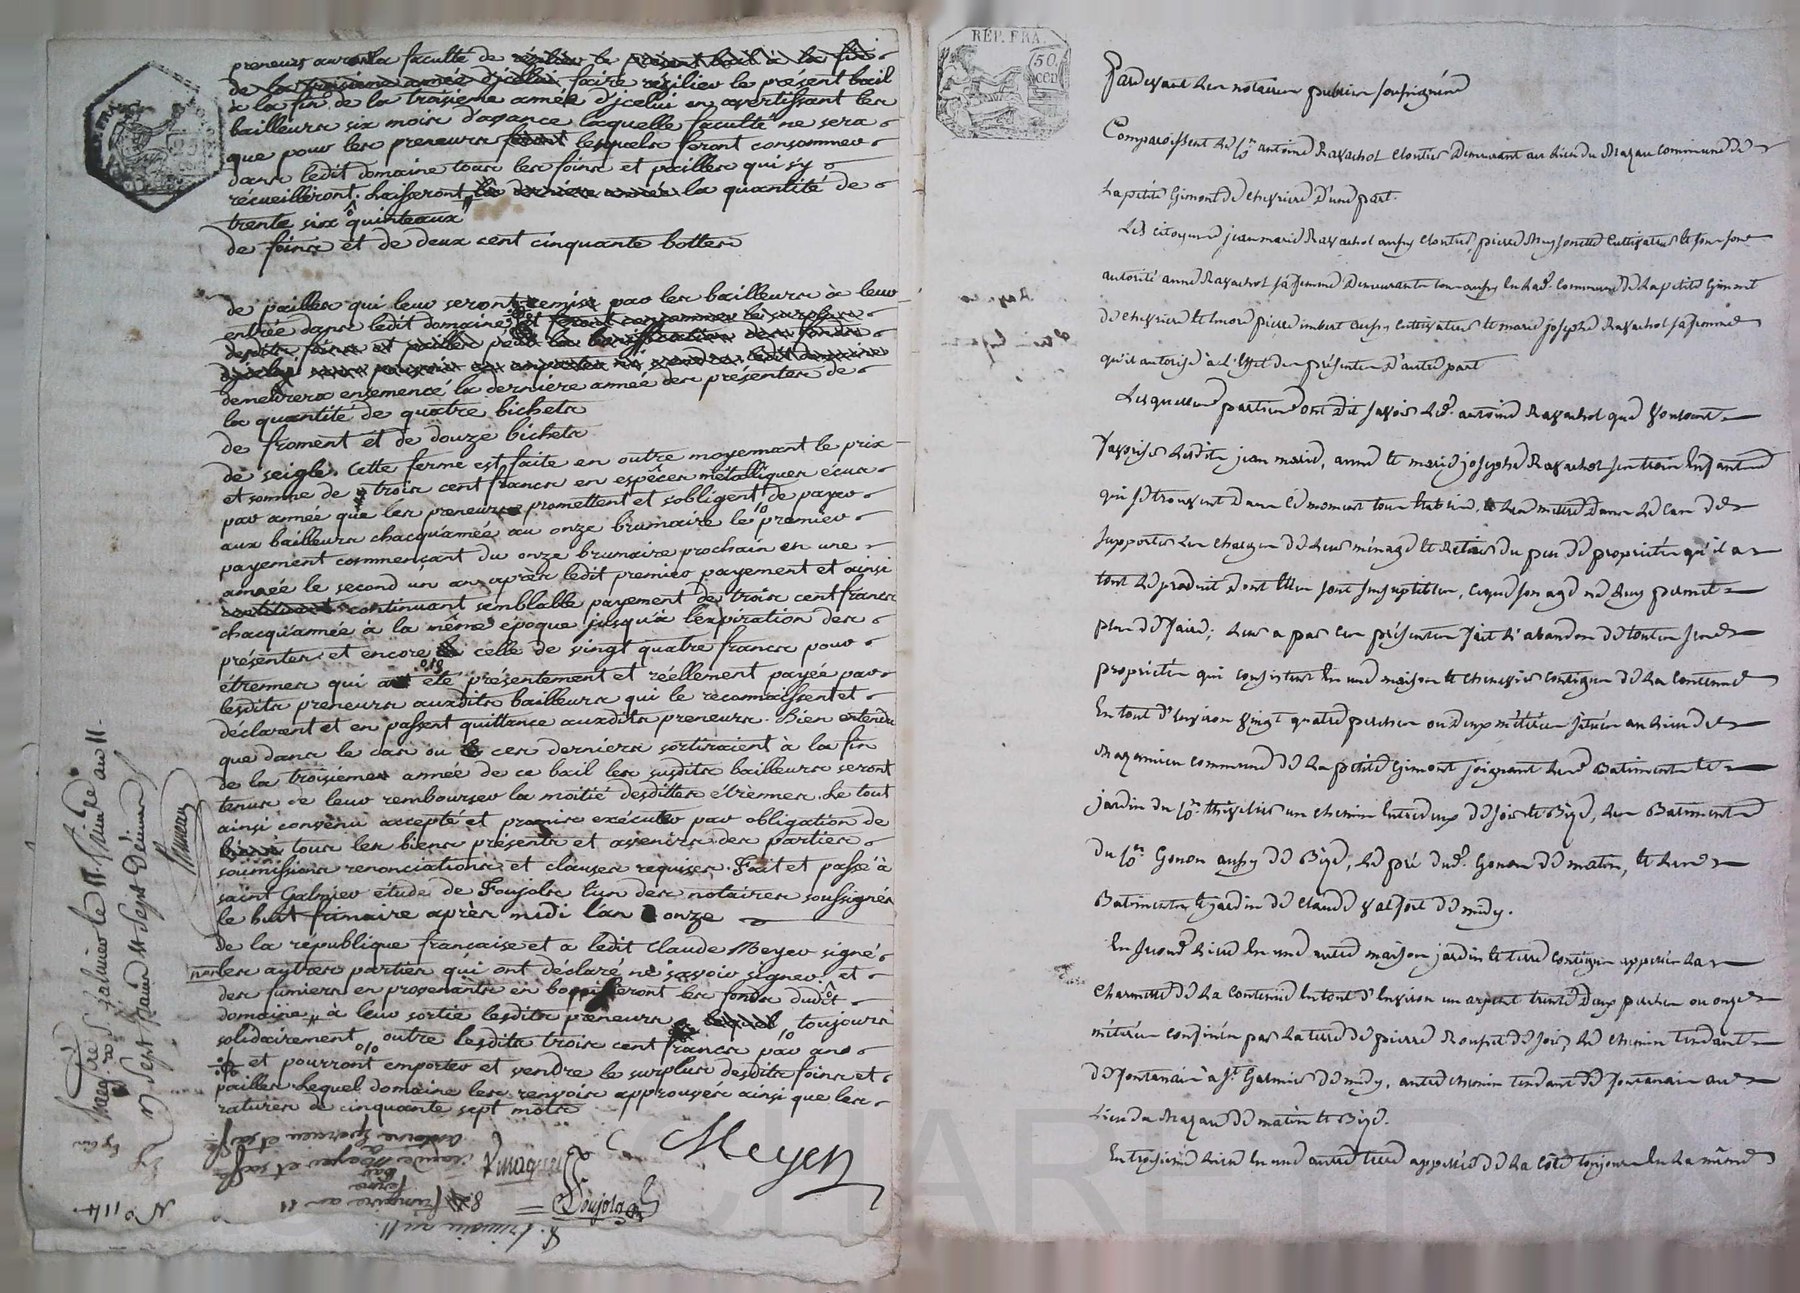 preneurs auront la faculté de résilier le présent bail à la fin
de la troisième année d'jcelui, faire résilier le présent bail
à la fin de la troisième année d'jcelui en avertissant les
bailleurs six mois d'avance laquelle faculté ne sera
que pour les preneurs lesquels feront consommer
dans ledit domaine tous les foins et pailles qui s'y
recueilleront. Laisseront la dernière année la quantité de
trente six quinteaux
de foins et de deux cent cinquante bottes
de pailles qui leur seront remis par les bailleurs à leur
entrée dans ledit domaine et feront consommer le surplus
desdits foins et pailles pour la bonification des fonds
d'jcelui sans pouvoir en emporter ni vendre ledit domaine
demeurera ensemencé la dernière année des présentes de
la quantité de quatre bichets
de froment et de douze bichets
de seigle. Cette ferme est faite en outre moyennant le prix
et somme de trois cent francs en espèces métalliques écus
par année que les preneurs promettent et s'obligent de payer
aux bailleurs chacqu'année au onze brumaire le premier
payement commençant du onze brumaire prochain en une
année le second un an après ledit premier payement et ainsi
continuant semblable payement de trois cent francs
chacqu'année à la même époque jusqu'à l'expiration des
présentes et encore celle de vingt quatre francs pour
étrennes qui a été présentement et réellement payée par
lesdits preneurs auxdits bailleurs qui le reconnaissent et
déclarent et en passent quittance auxdits preneurs. Bien entendu
que dans le cas ou ces derniers sortiraient à la fin
de la troisieme année de ce bail les susdits bailleurs seront
tenus de leur rembourser la moitié desdittes étrennes. Le tout
ainsi convenu accepté et promis exécuter par obligation de
tous les biens présents et avenirs des parties
soumissions renonciations et clauses requises. Fait et passé à
saint Galmier étude de Foujols l'un des notaires soussignés
le huit frimaire après midi l'an onze
de la république française et a ledit Claude Meyer signé
non les autres parties qui ont déclaré ne savoir signer et
des fumiers en provenants en bonifieront les fonds dudit
domaine à leur sortie lesdits preneurs lequel toujours
solidairement outre lesdits trois cent francs par ans
et pourront emporter et vendre le surplus desdits foins et
pailles Lequel domaine les renvois approuvés ainsi que les
ratures de cinquante sept mots
Meyer
Foujols
8 frimaire an 11
N° 114
REP. FRA.
50 CEN
Pardevant les notaires publics soussignés
Comparoissent le Cen antoine Ravachol cloutier demeurant au lieu du Mazau commune de
la petite Gimont de chevrieres d'une part.
Les citoyens jean marie Ravachol aussy cloutier, pierre cultivateur et sous son
autorité anne Ravachol sa femme demeurants tous aussy en lad. commune de la petite Gimont
de chevrieres et encore pierre imbert aussy cultivateur et marie josephe Ravachol sa femme
qu'il autorise à l'effet des présentes d'autre part
Lesquelles parties ont dit savoir led. antoine Ravachol que voulant
favoriser lesdits jean marie, anne et marie josephe Ravachol ses trois enfants
qui se trouvent dans ce moment tous etablis, et les mettre dans le cas de
supporter les charges de leurs ménage et retirer du peu de propriétés qu'il a
tout le produit dont elles sont susceptibles, ce que son age ne luy permet
plus de faire; leur a par ces présentes fait l'abandon de toutes ses
propriétés qui consistent en une maison et chenevier contigus de la contenue
en tout d'environ vingt quatre perches ou deux métérées situés au lieu de
commune de la petite Gimont joignant les batiments et
jardin du Cen un chemin entredeux de soir et bize, les batiments
du Cen Gonon aussy de bize, le pré dud. Gonon de matin, et les
batiments et jardin de claude de midy.
En second lieu en une autre maison jardin et terre contigus appellés la
charmette de la contenue en tout d'environ un arpent trente deux perches ou onze
métérées confinés par la terre de pierre de soir, le chemin tendant
de fontanais à St Galmier de midy, autre chemin tendant de fontanais au
lieu du Mazau de matin et bize.
En troisieme lieu en une autre terre appellée de la côte toujours en la même